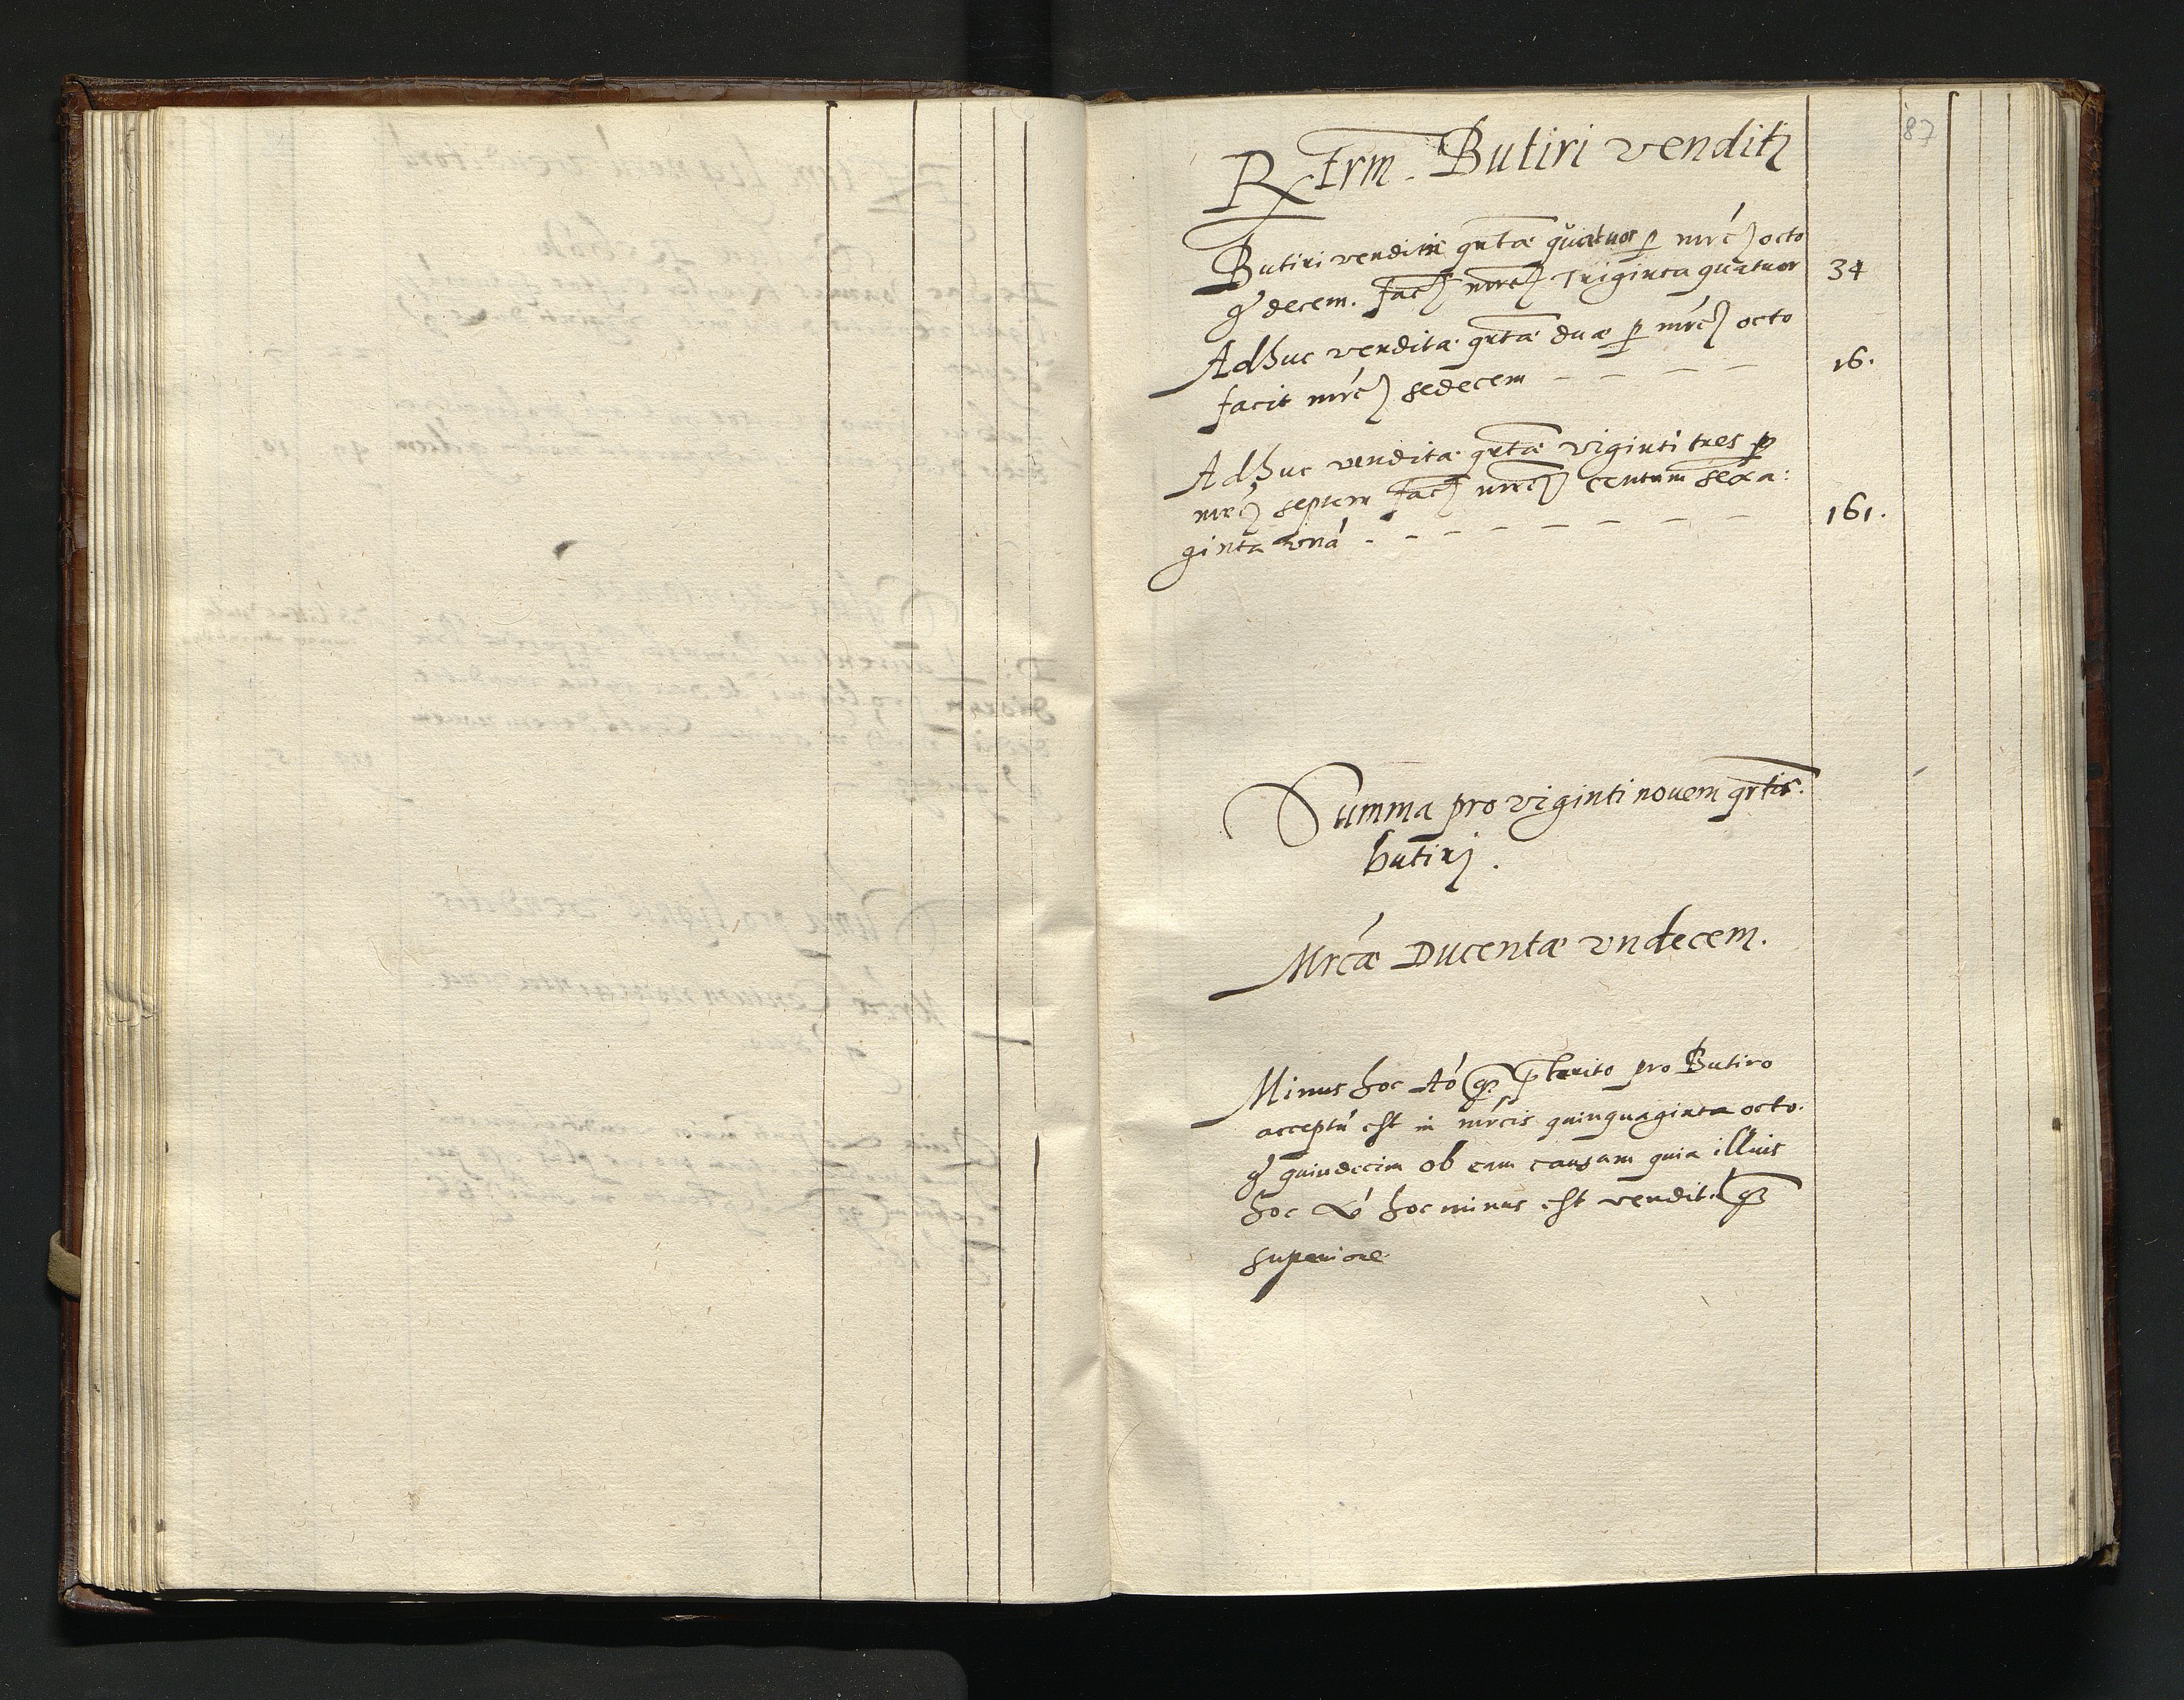 87
Rx Frm. Butiri venditj
Butiri venditae qrtae quatuor p mrcj octo
g decem. facj mrcj Triginta quatuor 34
Adhuc vendita qrtae duae p mrcj octo
facit mrcj sedecem - - - - 16.
Adhuc vendita qrtae viginti tres p
mrcj septem facj mrcj centum sexa:
ginta una - - - - - - - 161.
Summa pro viginti novem qrtis.
butirj.
Mrcae Ducentae undecem.
Minus hoc Ao qz pterito pro Butiro
acceptu est in mrcis quinquaginta octo.
g quindecim ob eam causam quia illius
hoc Ao hoc minus est vendit. qz
superiore